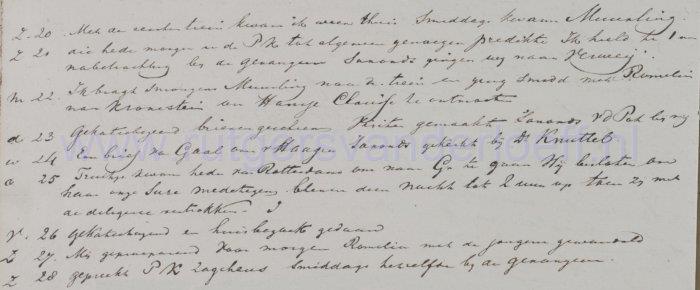 Z. 20. Met de eerste trein kwam ik weer thuis Smiddags kwam Meuerling
Z 21 die hede morgen in de PK tot algemeen genoegen predikte Ik hield te 1 uur
nabetrachting bij de gevangenen Savonds gingen wij naar Verweij.
M. 22. Ik bragt Smorgens Meuerling naar de trein en ging Smidd met Romelin
naar Kronestein om Hansje Clarisse te ontmoeten
d 23 Gekatechiseerd brieven geschreven Visite gemaakt Savonds v d Pat bij mij
w 24 Een brief van Gaal om v Haagen Savonds gekaart bij Ds Knuttel
d 25 Truitje kwam hede van Rotterdam om naar Go te gaan Wij besloten om
haar onze Sure medetegeven bleven deze nacht tot 2 uur op toen zij met
de diligence vertrokken. J
V. 26 Gekatechiseerd en huisbezoek gedaan
Z 27. Mij geprepareerd voor morgen Romelin met de jongens gewandeld
Z 28 gepreekt PK Zacheus Smiddags hetzelfde bij de gevangenen.
www.rutgersvanderloeff.nl